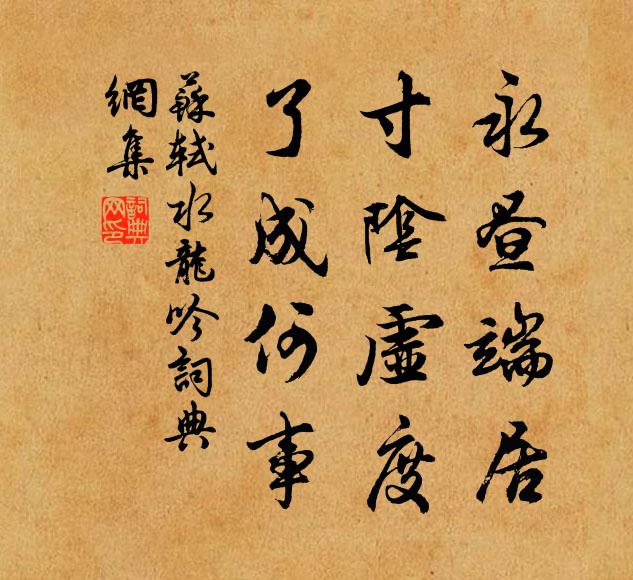 永晝端居
寸陰虛度
了成何事
蘇軾水龍吟詞典
網集
詞典
网印